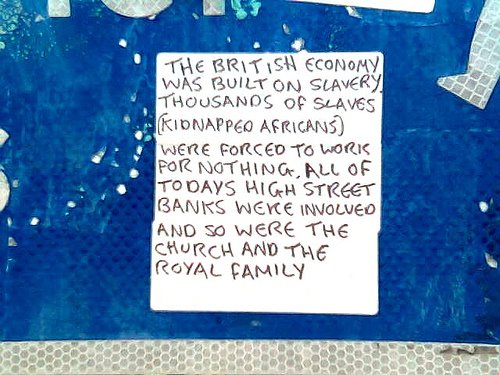 THE BRITISH ECONOMY
WAS BUILT ON SLAVERY.
THOUSANDS OF SLAVES
(KIDNAPPED AFRICANS)
WERE FORCED TO WORK
FOR NOTHING. ALL OF
TODAYS HIGH STREET
BANKS WERE INVOLVED
AND SO WERE THE
CHURCH AND THE
ROYAL FAMILY